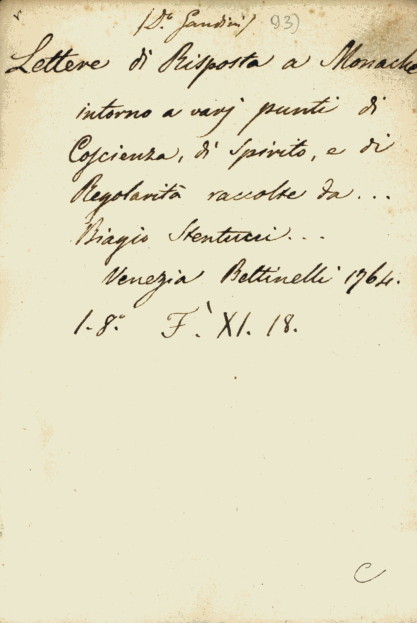 (Dº Gandini) 93)
Lettere di Risposta a Monache
intorno a varj punti di
Coscienza, di Spirito, e di
Regolarità raccolte da...
Biagio Stentucci...
Venezia Bettinelli 1764.
1-8.º F.` XI. 18.
C